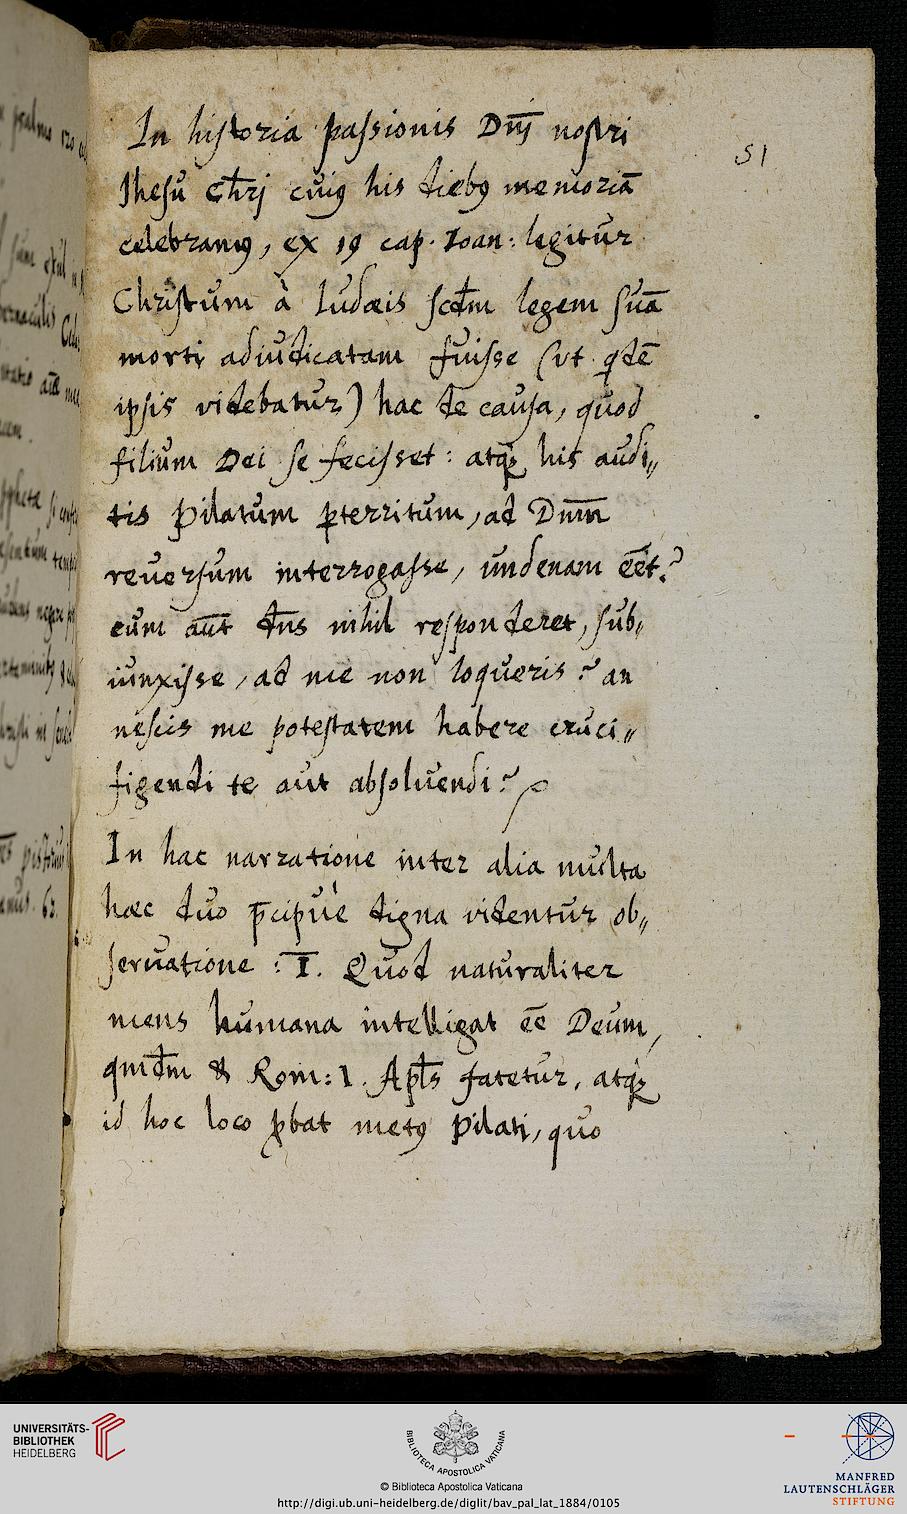 In historia passionis Dn̄j nostri
51
Jhesu Chr̄j cuiꝰ his diebꝰ memoriā
celebramꝰ, ex 19 cap. Ioan: legitur
Christum à Iudæis scd̄m legem suā
morti adiudicatam fuisse (vt qdē
ipsis videbatur) hac de causa, quod
filium Dei se fecisset: atqꝫ his audi„
tis Pilatum ꝑterritum, ad Dnm̄
reuersum interrogasse, undenam eēt?
cum aūt dn̄s nihil responderet, sub„
iunxisse, ad me non loqueris? an
nescis me potestatem habere cruci„
figendi te aut absoluendi?
In hac narratione inter alia multa
hæc duo p̄cipuè digna videntur ob„
seruatione: I. Quod naturaliter
mens humana intelligat eē Deum,
qmd̄m & Rom: 1. Apl̄s fatetur, atqꝫ
id hoc loco ꝓbat metꝰ Pilati, quo
UNIVERSITÄTS-
BIBLIOTHEK
HEIDELBERG
BIBLIOTECA APOSTOLICA VATICANA
© Biblioteca Apostolica Vaticana
http://digi.ub.uni-heidelberg.de/diglit/bav_pal_lat_1884/0105
MANFRED
LAUTENSCHLÄGER
STIFTUNG